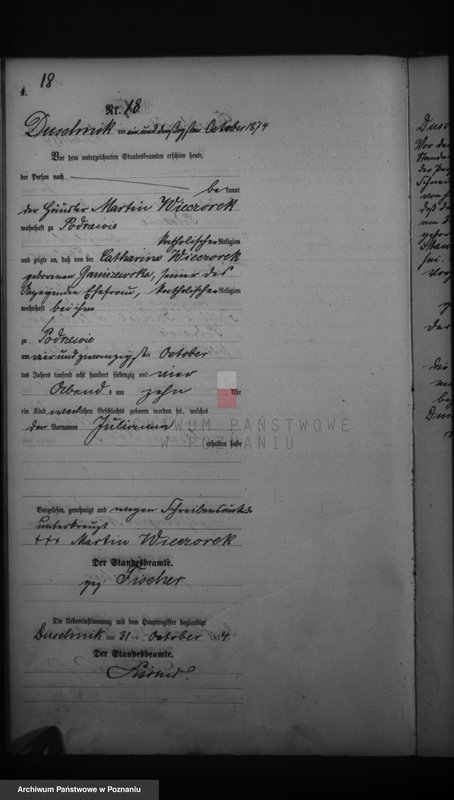 18
4.
Nr. 18.
Duschnik am ein und dreißigsten October 1874
Vor dem unterzeichneten Standesbeamten erschien heute,
der Person nach
bekannt
der Häusler Martin Wieczorek
wohnhaft zu Podrzewie
katholischer Religion
und zeigte an, daß von der Catharina Wieczorek
geborenen Januszewska, seiner des
Anzeigenden Ehefrau, katholischer Religion
wohnhaft bei ihm
zu Podrzewie
am vier und zwanzigsten October
des Jahres tausend acht hundert siebenzig und vier
Abends um zehn Uhr
ein Kind weiblichen Geschlechts geboren worden sei, welches
den Vornamen Julianna
erhalten habe
ARCHIWUM PAŃSTWOWE
W POZNANIU
Vorgelesen, genehmigt und wegen
unterkreuzt
+++ Martin Wieczorek
Der Standesbeamte.
gez Fischer
Die Uebereinstimmung mit dem Hauptregister beglaubigt
Duschnik am 31 October 1874.
Der Standesbeamte.
Archiwum Państwowe w Poznaniu